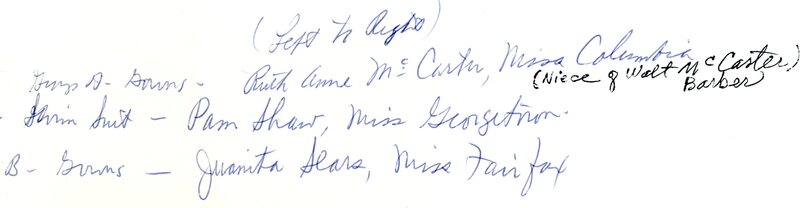 (Left to Right)
Group A- Gowns - Ruth Anne McCarter, Miss Columbia
(Niece of Walt McCarter,)
Barber
- Swim Suit - Pam Shaw, Miss Georgetown.
B- Gowns - Juanita Sears, Miss Fairfax